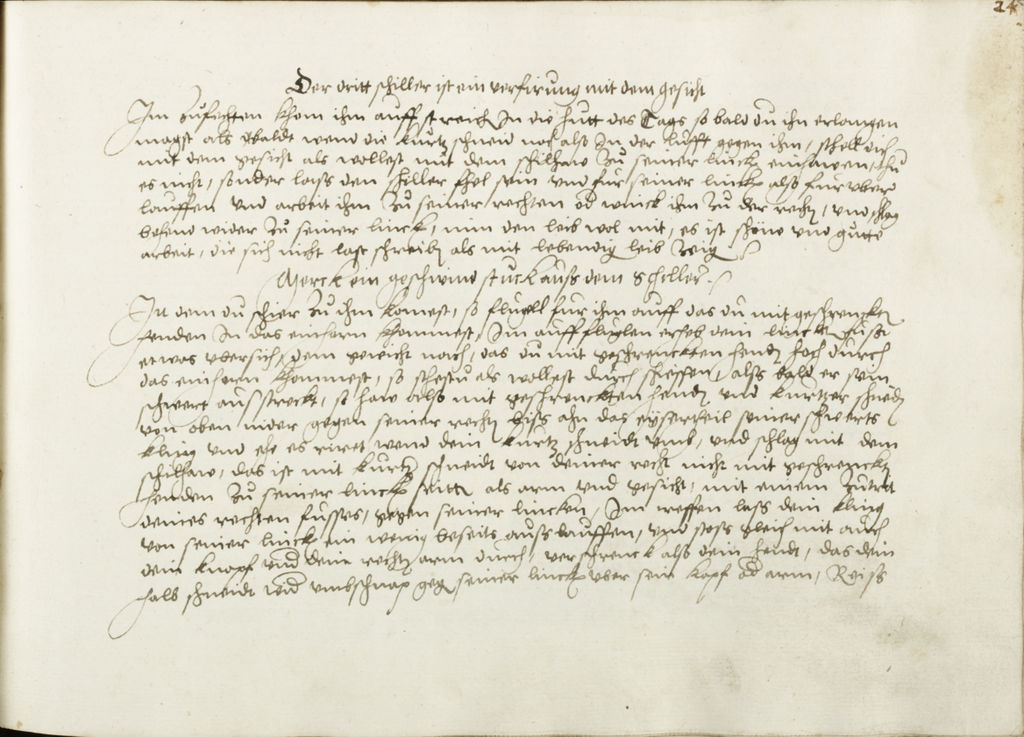 24
Der dritt schiller ist ein verfirung mit dem gesicht
Im zufechten khom ihm auff streich In die hutt des Tags so bald du ihn erlangen
magst als baldt wend die kurtz schneid noch also In der lufft gegen ihm, schill dich
mit dem gesicht als wollest mit dem schilhaw zu seiner linck einhawen, thu
es nicht, sonder lass den schiller fhel sein vnd fur seiner linck also fur uber
lauffen vnd arbeit ihm zu seiner rechten od winck ihm zu der recht, vnd schlag
behend wider zu seiner linck, nim den leib wol mit, es ist schöne vnd gutte
arbeit, die sich nicht last schreiben als mit lebendig leib zeig
Merck ein geschwind stuck auss dem Schiller.
In dem du schier zu ihm komest, so flugell fur ihm auff das du mit geschrenckten
henden In das einhorn khommest, Im auff fluglen erheb dein lincken fuss
etwas ubersich, dem gewicht nach, das du mit geschrenckten hend hoch durch
das einhorn khommest, so stehstu als wollest durch schiessen, alss bald er sein
schwert ausstreckt, so haw also mit geschrenckten hend vnd kurtzer schneid
von oben nider gegen seiner recht biss ahn das eysertheil seiner schwerts
kling vnd ehe es riret wend dein kurtz schneidt vmb, vnd schlag mit dem
schilhaw, das ist mit kurtz schneidt von deiner recht nicht mit geschrenckten
henden zu seiner linck seitten als arm vnd gesicht, mit einem zutrit
deines rechten fusses, gegen seiner lincken, Im treffen lass dein kling
von seiner linck ein wenig beseits auss lauffen, vnd stoss gleich mit auch
dein knopf vnd dein recht arm durch, verschrenck also dein hendt, das dein
halb schneidt wid vmbschnap geg seiner linck uber sein kopf od arm, Reiss